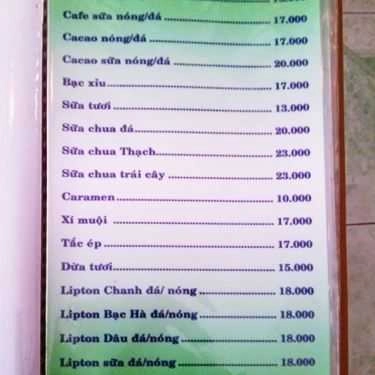 Cafe sữa nóng/đá 17.000
Cacao nóng/đá 17.000
Cacao sữa nóng/đá 20.000
Bạc xỉu 17.000
Sữa tươi 13.000
Sữa chua đá 20.000
Sữa chua Thạch 23.000
Sữa chua trái cây 23.000
Caramen 10.000
Xí muội 17.000
Tắc ép 17.000
Dừa tươi 15.000
Lipton Chanh đá/ nóng 18.000
Lipton Bạc Hà đá/nóng 18.000
Lipton Dâu đá/nóng 18.000
Lipton sữa đá/nóng 18.000